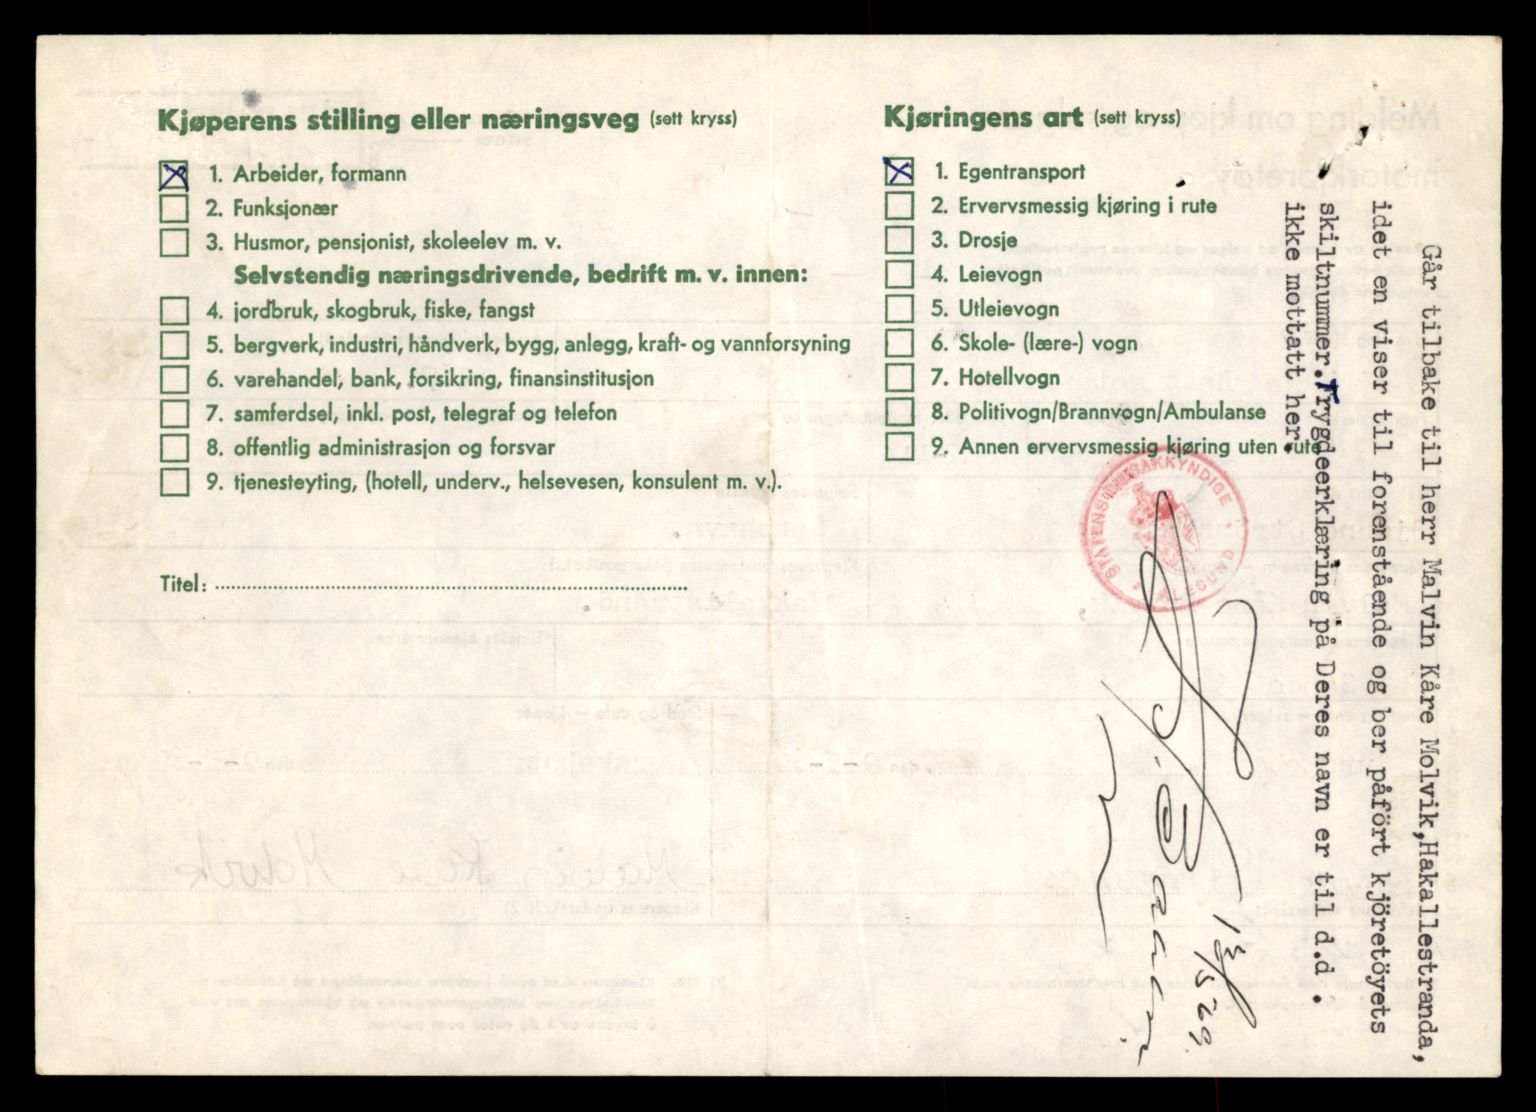 Kjøperens stilling eller næringsveg (sett kryss)
X 1. Arbeider, formann
2. Funksjonær
3. Husmor, pensjonist, skoleelev m. v.
Selvstendig næringsdrivende, bedrift m. v. innen:
4. jordbruk, skogbruk, fiske, fangst
5. bergverk, industri, håndverk, bygg, anlegg, kraft- og vannforsyning
6. varehandel, bank, forsikring, finansinstitusjon
7. samferdsel, inkl. post, telegraf og telefon
8. offentlig administrasjon og forsvar
9. tjenesteyting, (hotell, underv., helsevesen, konsulent m. v.).
Titel:
Kjøringens art (sett kryss)
X 1. Egentransport
2. Ervervsmessig kjøring i rute
3. Drosje
4. Leievogn
5. Utleievogn
6. Skole- (lære-) vogn
7. Hotellvogn
8. Politivogn/Brannvogn/Ambulanse
9. Annen ervervsmessig kjøring uten rute
Går tilbake til herr Malvin Kåre Molvik,Hakallestranda,
idet en viser til forenstående og ber påfört kjöretöyets
skiltnummer.Trygdeerklæring på Deres navn er til d.d.
ikke mottatt her.
STATENS BILSAKKYNDIGE
ÅLESUND